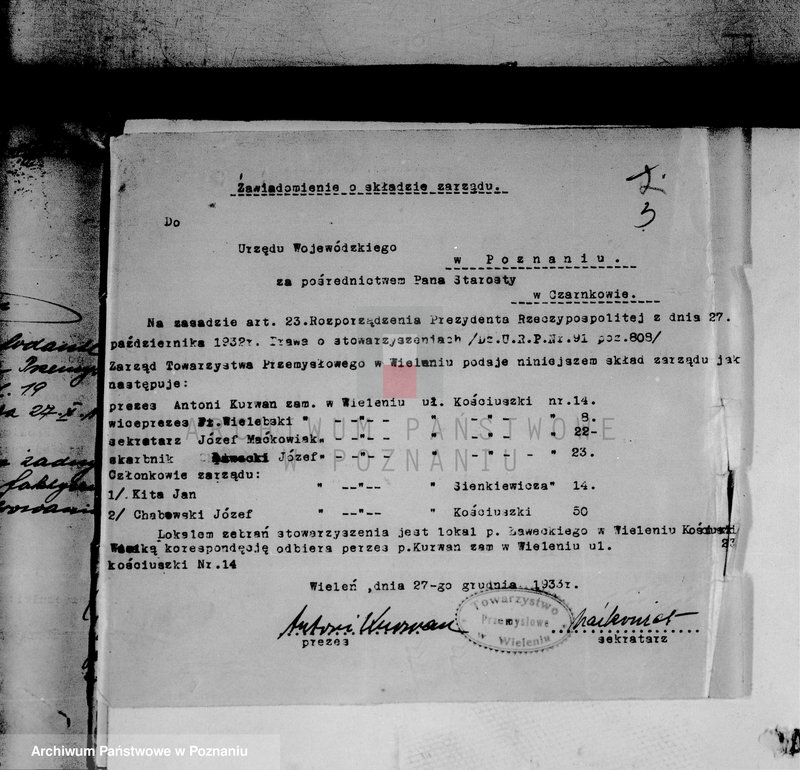 Zawiadomienie o składzie zarządu.
3
Do
Urzędu Wojewódzkiego
w Poznaniu.
za pośrednictwem Pana Starosty
w Czarnkowie.
Na zasadzie art. 23.Rozporządzenia Prezydenta Rzeczypospolitej z dnia 27.
października 1932r. Prawa o stowarzyszeniach /Dz.U.R.P.Nr.91 poz.808/
Zarząd Towarzystwa Przemysłowego w Wieleniu podaje niniejszem skład zarządu jak
następuje:
prezes Antoni Kurwan zam. w Wieleniu ul. Kościuszki nr.14.
wiceprezes Fr.Wielebski " --"-- " -"- " 8.
sekretarz Józef Maćkowiak" --"-- " -"- " 22-
skarbnik Józef" --"-- " -"- - " 23.
Członkowie zarządu:
1/. Kita Jan " --"-- " Sienkiewicza" 14.
2/ Chabowski Józef " --"-- " Kościuszki 50
Lokalem zebrań stowarzyszenia jest lokal p. Ławeckiego w Wieleniu Kościuszki/
23
korespondęcję odbiera perzes p.Kurwan zam w Wieleniu ul.
kościuszki Nr.14
Wieleń ,dnia 27-go grudnia 1933r.
Antoni Kurwan
Towarzystwo
Przemysłowe
w Wieleniu
Maćkowiak
prezes
sekratarz
ARCHIWUM PAŃSTWOWE
W POZNANIU
Archiwum Państwowe w Poznaniu